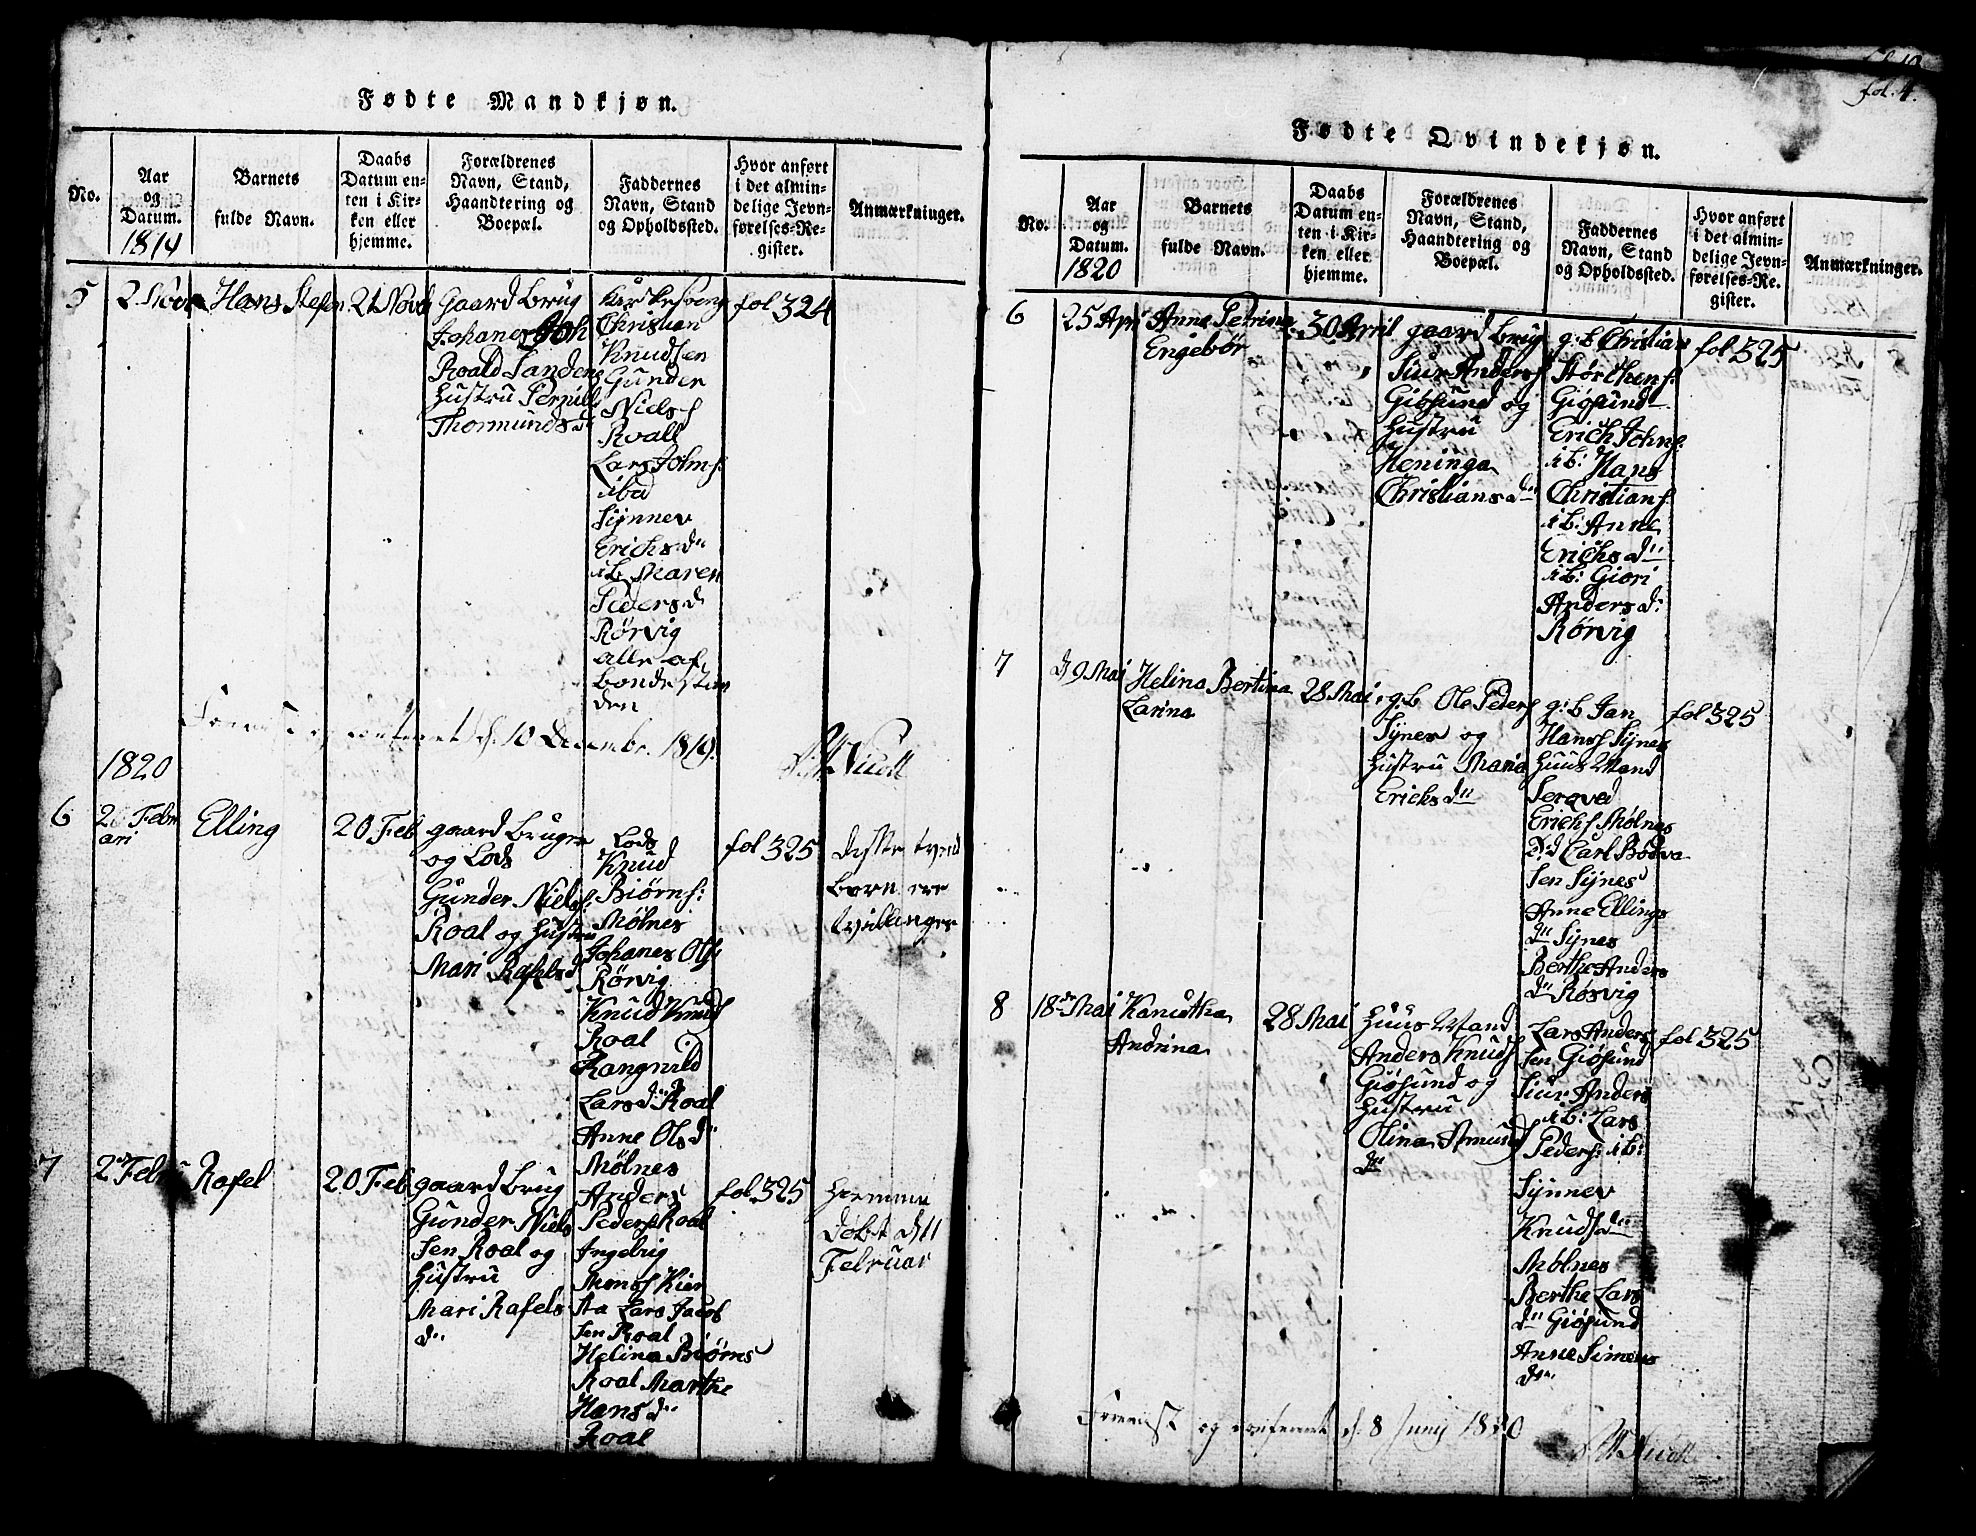 Fødte Mandkjøn.
No.
Aar
og
Datum.
1819
Barnets
fulde Navn.
Daabs
Datum en-
ten i Kir-
ken eller
hjemme.
Forældrenes
Navn, Stand,
Haandtering og
Boepæl.
Faddernes
Navn, Stand
og Opholdssted.
Hvor anført
i det almin-
delige Jevn-
førelses-Re-
gister.
Anmærkninger.
5
2 Novb
Hans Stefen
21 Novb
Gaard brug
Johanes Joh
Roald Landen
Hustru Pernill
Thormundsd
Christian
Knudsen
Gunder
Niels f
Roall
Lars Johns:
ibd
Synnev
Erichs du
ib Maren
Peders d
Rørvig
alle af
bondestan
den
fol 324
og confereret d. 10 Decembr. 1819.
1820
6
2 Febru
ari
Elling
20 Feb
gaard bruger
og Lods
Gunder Nielsf:
Roal og Hustru
Mari Rafelsd
Lods
Knud
Biørnf:
Mølnes
Johanes Olf:
Rørvig
Knud Knud
Roal
Rangnild
Larsdu Roal
Anne Olsd
Mølnes
fol 325
disse tvend
børn ere
tvillinger
7
2 Feb
Rafel
20 Feb
gaard brug
Gunder Niels
sen Roal og
Hustru
Mari Rafels
du
Anders
Peders Roal
Ingebrig
Monsf Kier
sta Lars Jacob
sen Roal
Helina Biørns
Roal Marthe
Hans d
Roal
fol. 325
hiemme
døbt d 11
Februar
fol. 4.
Fødte Qvindekjøn.
No.
Aar
og
Datum.
1820
Barnets
fulde Navn.
Daabs
Datum en-
ten i Kir-
ken eller
hjemme.
Forældrenes
Navn, Stand,
Haandtering og
Boepæl.
Faddernes
Navn, Stand
og Opholdssted.
Hvor anført
i det almin-
delige Jevn-
førelses-Re-
gister.
Anmærkninger.
6
25 Apri
Anne Petrina
Engebør
30 April
gaard brug
Siur Andersf
Giøsund og
Hustru
Heninga
Christiansd
g:b Christian
Størchens:
Giøsund
Erich Johns:
ib: Hans
Christianf
ib: Anne
Erichs du
ib: Giori
Anders d:
Rørvig
fol 325
7
d 9 Mai
Helina Bertina
Larina
28 Mai
g:b Ole Peders
Synes og
Hustru Maria
Erichs du
g:b Jan
Hansf Synes
Huus Mand
Serqved
Erichf Mølnes
Carl Bodva
sen Synes
Anne Ellings
du Synes
Berthe Anders
du Rørvig
fol 325
8
18 de Mai
Kanutha
Andrina
28 Mai
Huus Mand
Anders Knudf
Giøsund og
Hustru
Olina Amund
du
Lars Anders
sen Giøsund
Siur Anders
ib: Lars
Peders: ib:
Synnev
Knudsdu
Mølnes
Berthe Lars
du Giøsund
Anne Simens
du
fol 325
og confereret d. 8 Junij 1820